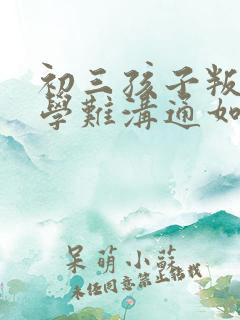 初三孩子叛
學難溝通如
呆萌小蘇
未經同意禁止轉載